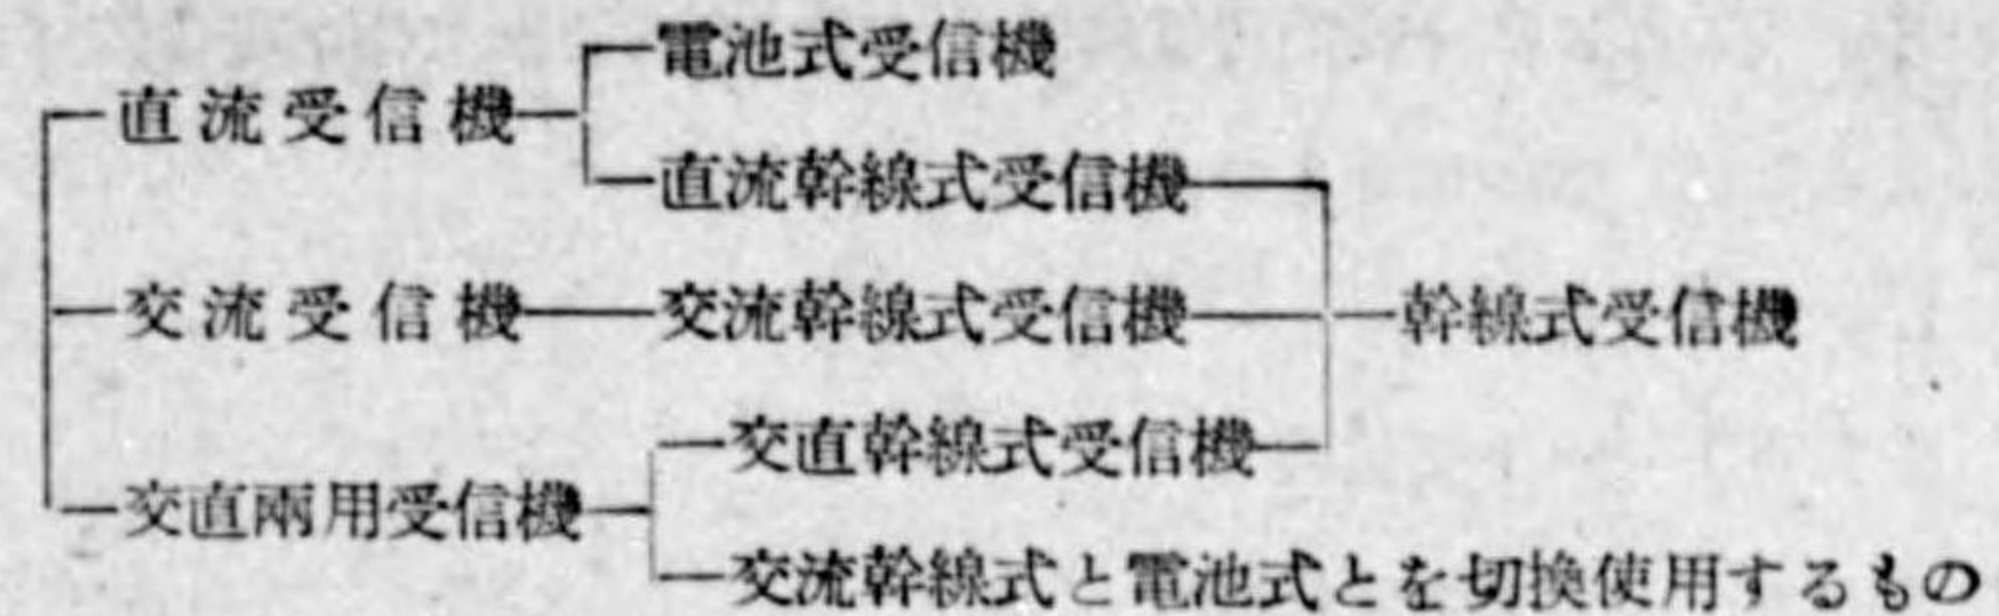 電池式受信機
直流受信機
直流幹線式受信機
交流受信機 交流幹線式受信機 幹線式受信機
交直幹線式受信機
交直兩用受信機
交流幹線式と電池式とを切換使用するもの